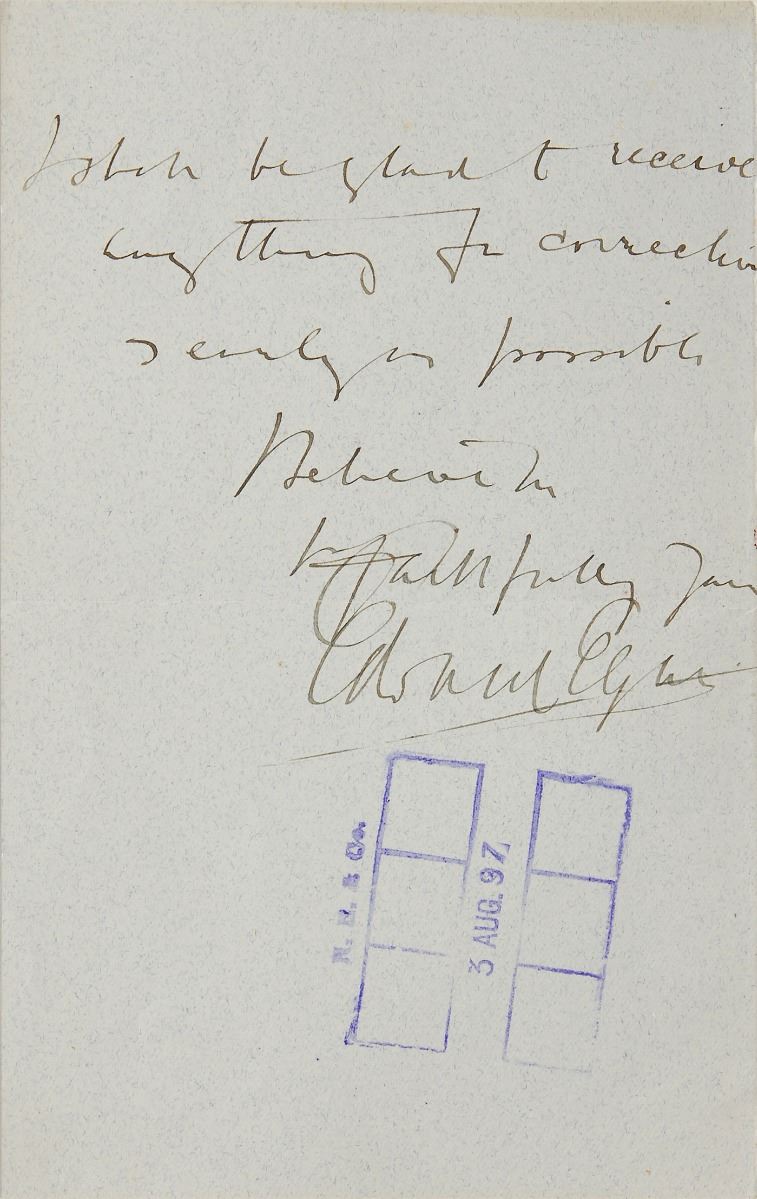 I shall be glad to receive
anything for correction
as early as possible
Believe me
faithfully yours
Edward Elgar
N. E. & Co.
3 AUG. 97